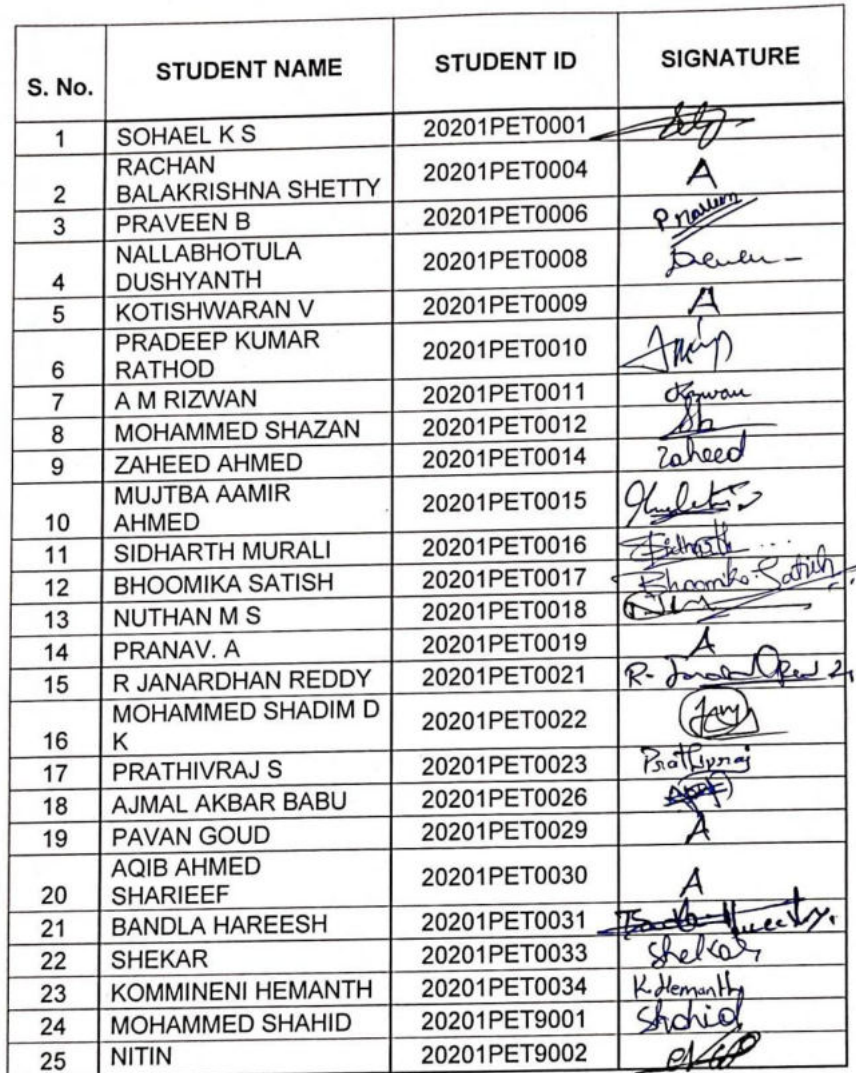 S. No. STUDENT NAME STUDENT ID SIGNATURE
1 SOHAEL K S 20201PET0001
RACHAN
2 BALAKRISHNA SHETTY 20201PET0004 A
3 PRAVEEN B 20201PET0006 Praveen
NALLABHOTULA
4 DUSHYANTH 20201PET0008
5 KOTISHWARAN V 20201PET0009 A
PRADEEP KUMAR
6 RATHOD 20201PET0010
7 A M RIZWAN 20201PET0011 Rizwan
8 MOHAMMED SHAZAN 20201PET0012
9 ZAHEED AHMED 20201PET0014 Zaheed
MUJTBA AAMIR
10 AHMED 20201PET0015
11 SIDHARTH MURALI 20201PET0016 Sidharth
12 BHOOMIKA SATISH 20201PET0017 Bhoomika Satish
13 NUTHAN M S 20201PET0018
14 PRANAV. A 20201PET0019 A
15 R JANARDHAN REDDY 20201PET0021
MOHAMMED SHADIM D
16 K 20201PET0022
17 PRATHIVRAJ S 20201PET0023 Prathivraj
18 AJMAL AKBAR BABU 20201PET0026
19 PAVAN GOUD 20201PET0029 A
AQIB AHMED
20 SHARIEEF 20201PET0030 A
21 BANDLA HAREESH 20201PET0031
22 SHEKAR 20201PET0033 Shekar
23 KOMMINENI HEMANTH 20201PET0034 K.Hemanth
24 MOHAMMED SHAHID 20201PET9001 Shahid
25 NITIN 20201PET9002